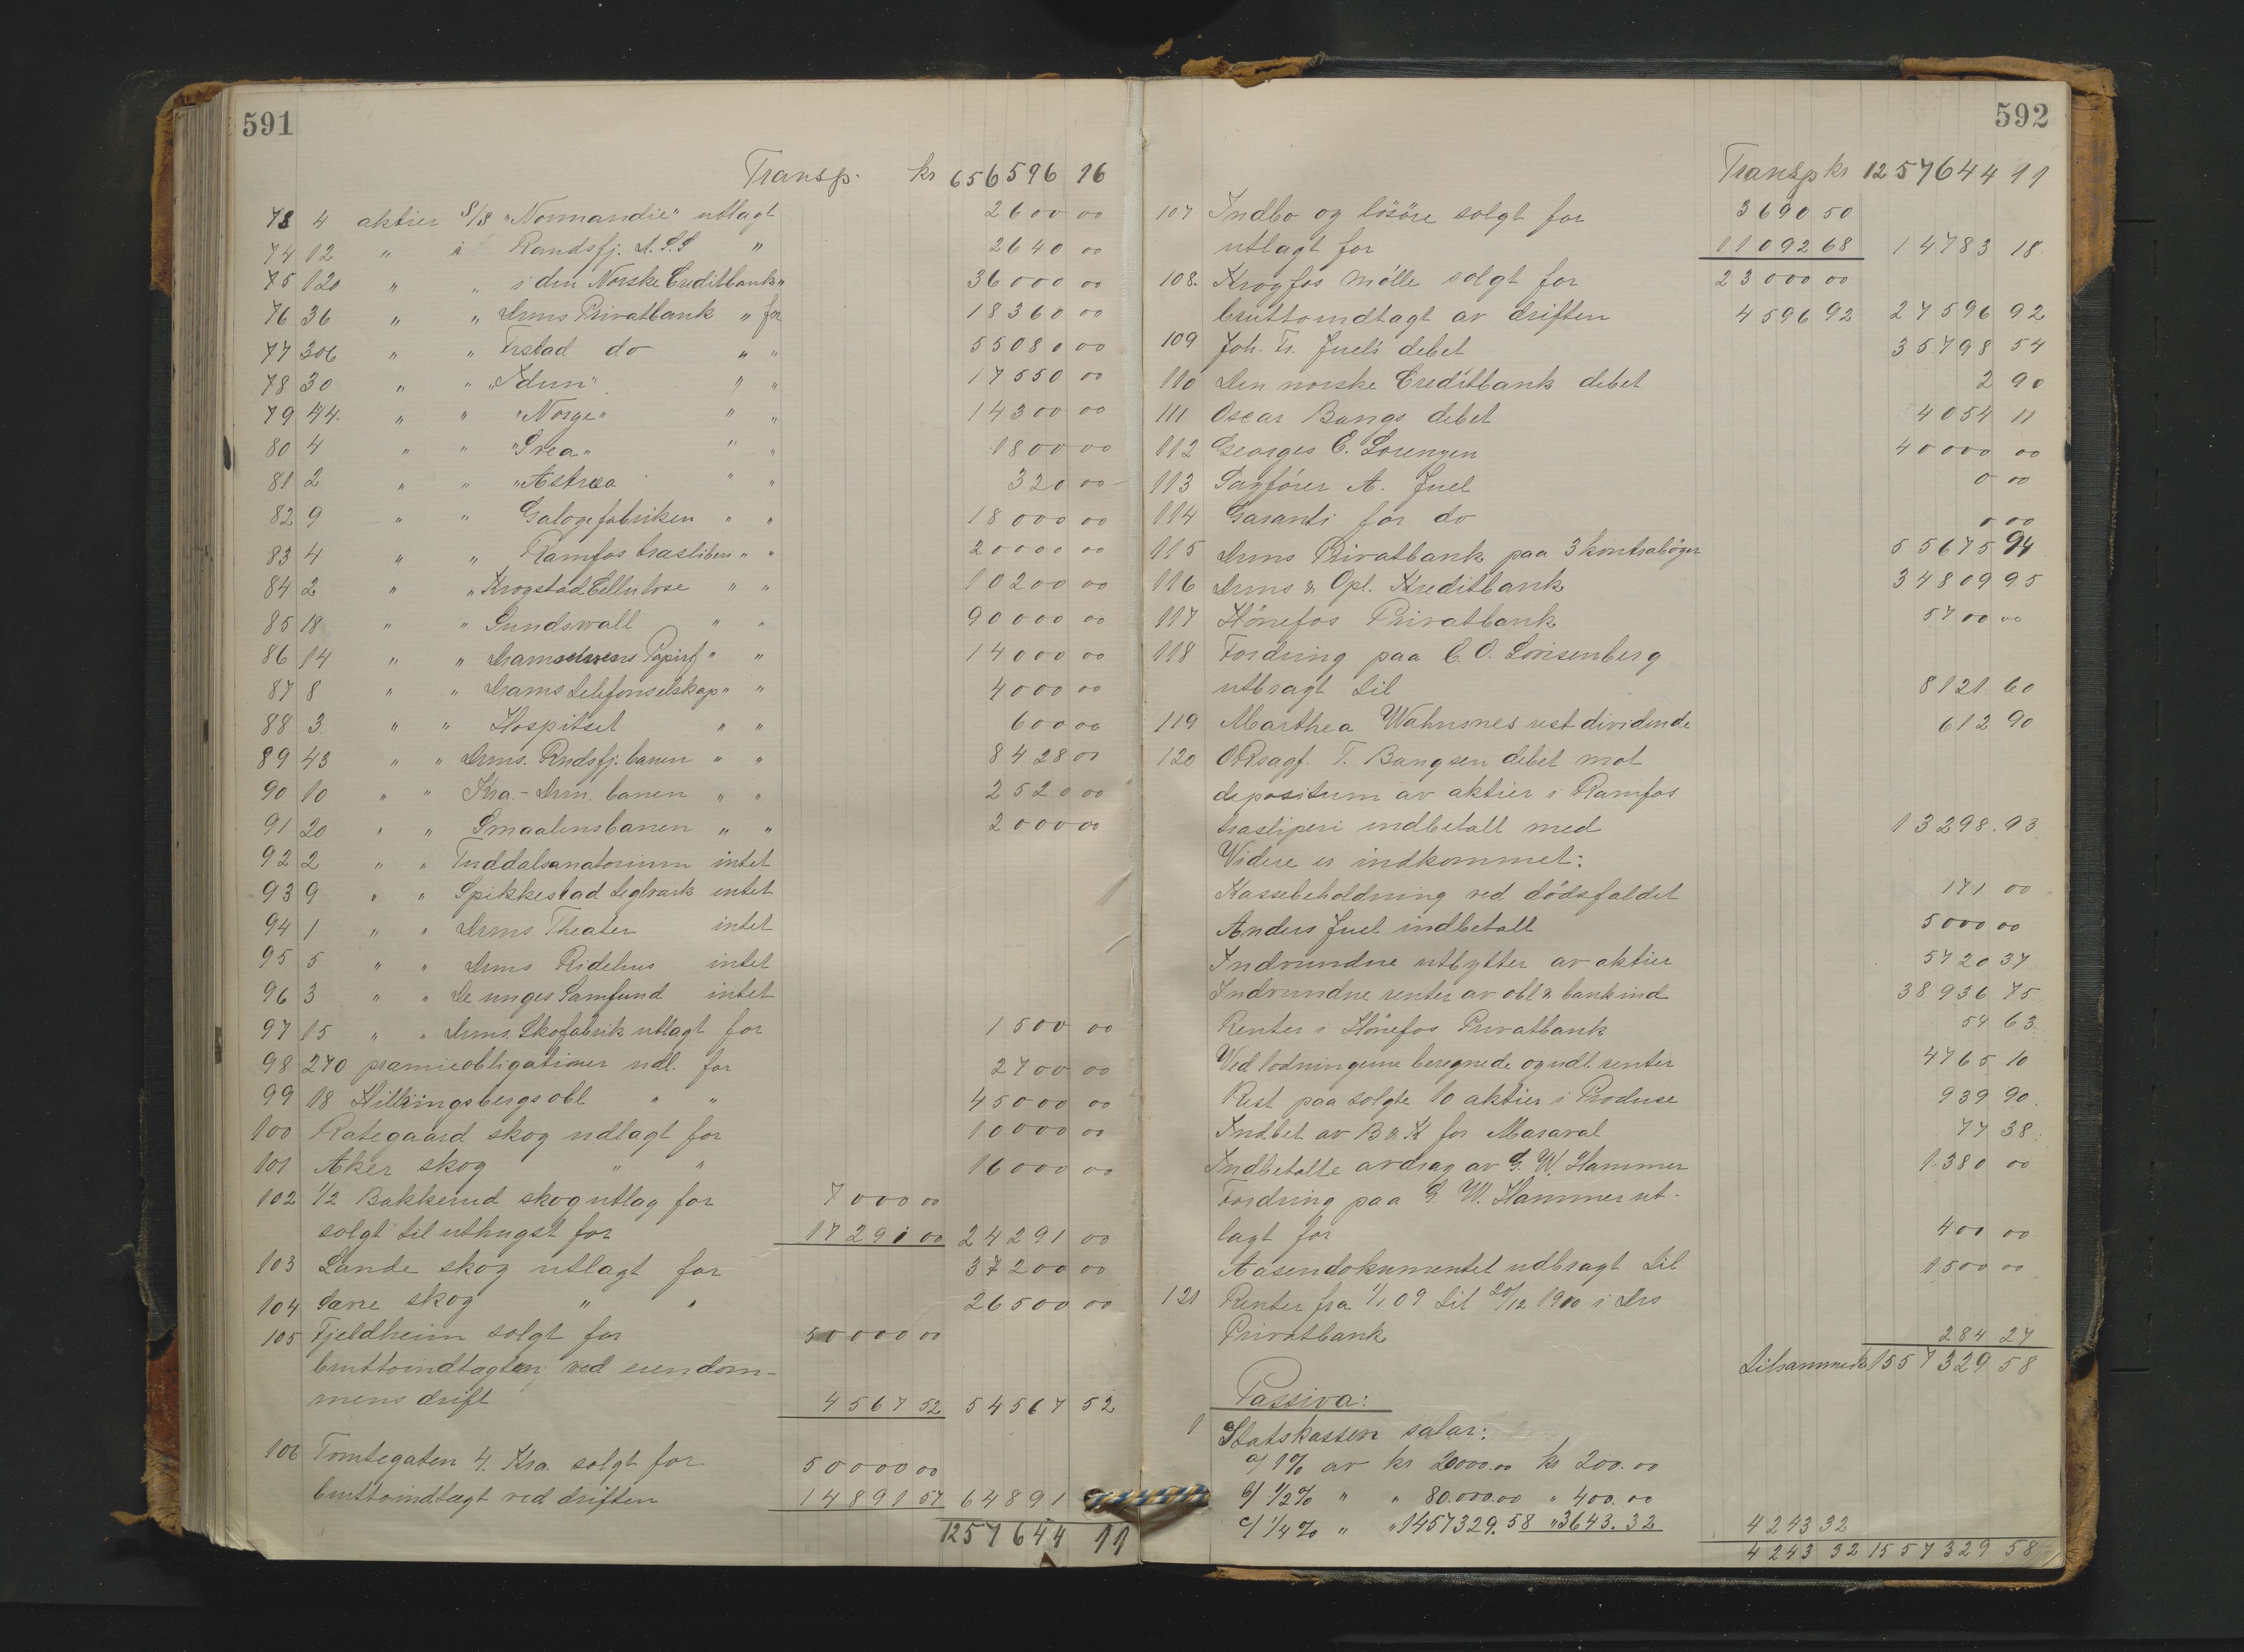 591
Transp. kr 656596 16
73 4 aktier S/S "Normandie" utlagt 2600 00
74 12 " i Randsfj. D.S.S " 2640 00
75 120 " " i den Norske Creditbank " 36000 00
76 36 " " Drms Privatbank " for 18360 00
77 306 " " Frstad do " " 55080 00
78 30 " " "Idun" " " 17550 00
79 44. " " "Norge" " " 14300 00
80 4 " " "Svea" " " 1800 00
81 2 " " "Astræa " " 320 00
82 9 " " Galogefabriken " " 18000 00
83 4 " " Ramfos træsliberi " " 20000 00
84 2 " " Krogstad Cellulose " " 10200 00
85 18 " " Sundswall " " 90000 00
86 14 " " Dramselvens Papirf " " 14000 00
87 8 " " Drams Telefonselskap " " 4000 00
88 3 " " Hospitset " " 600 00
89 43 " " Drms. Rndsfj. banen " " 8428 00
90 10 " " Kra.-Drm. banen " " 2520 00
91 20 " " Smaalensbanen " " 2000 00
92 2 " " Tuddalsanatorium intet
93 9 " " Spikkestad Teglværk intet
94 1 " " Drms. Theater intet
95 5 " " Drms Ridehus intet
96 3 " " De unges Samfund intet
97 15 " " Drms. Skofabrik utlagt for 1500 00
98 270 præmieobligationer udl. for 2700 00
99 18 Hillringsbergs obl " " 45000 00
100 Rategaard skog udlagt for 10000 00
101 Aker skog " " 16000 00
102 1/2 Bakkerud skog utlag for 7000 00
solgt til uthugst for 17291 00 24291 00
103 Lande skog utlagt for 37200 00
104 Sarre skog " " 26500 00
105 Fjeldheim solgt for 50000 00
bruttoindtagten ved eiendom-
mens drift 4567 52 54567 52
106 Tomtegaten 4. Kra. solgt for 50000 00
bruttoindtægt ved driften 14891 57 64891
1257644 11
592
Transp kr 1257644 11
107 Indbo og lösöre solgt for 3690 50
utlagt for 11092 68 14783 18
108. Krogfos mölle solgt for 23000 00
bruttoindtagt av driften 4596 92 27596 92
109 Joh. Fr. Juels debet 35798 54
110 Den norske Creditbank debet 2 90
111 Oscar Bangs debet 4054 11
112 Georges C. Sorensen 40000 00
113 Sagförer A. Juel 0 00
114 Garanti for do 0 00
115 Drms Privatbank paa 3 kontraböger 55675 94
116 Drms & Opl. Kreditbank 34809 95
117 Hönefos Privatbank 5700 00
118 Fordring paa C. O. Lovisenberg
utbragt til 8121 60
119 Marthea Wahnsnes rest dividende 612 90
120 ORsagf. T. Bangsen debet mot
depositum av aktier i Ramfos
træsliperi indbetalt med 13298.93
Videre er indkommet:
Kassebeholdning ved dödsfaldet 171 00
Anders Juel indbetalt 5000 00
Indvundne utbytter av aktier 5720 37
Indvundne renter av obl & bankind 38936 75
Renter i Hönefos Privatbank 54 63
Ved lodningerne beregnede og udl. renter 4765 10
Rest paa solgte 10 aktier i Produse 939 90
Indbet av B & K for Maraval 77 38
Indbetalte avdrag av G. W. Hammer 1380 00
Fordring paa G. W. Hammer ut-
lagt for 400 00
Aasendokumentet udbragt til 1500 00
121 Renter fra 1/1 09 til 20/12 1910 i Drs
Privatbank 284 27
tilsammen kr 1557329 58
Passiva:
1 Statskassen salær:
a/ 1% av kr 20000.00 kr 200.00
b/ 1/2% " " 80.000.00 " 400.00
c/ 1/4% " " 1457329.58 " 3643.32 4243 32
4243 32 1557329 58